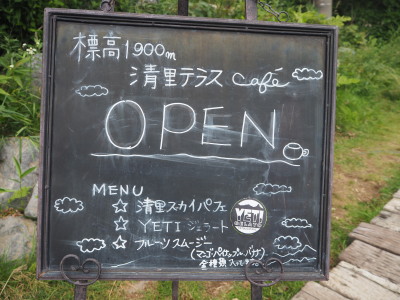 標高1900m
清里テラス Café
OPEN
MENU
☆ 清里スカイパフェ
☆ YETI ジェラート
☆ フルーツスムージー
(マンゴ・パイナップル・バナナ)
全種類